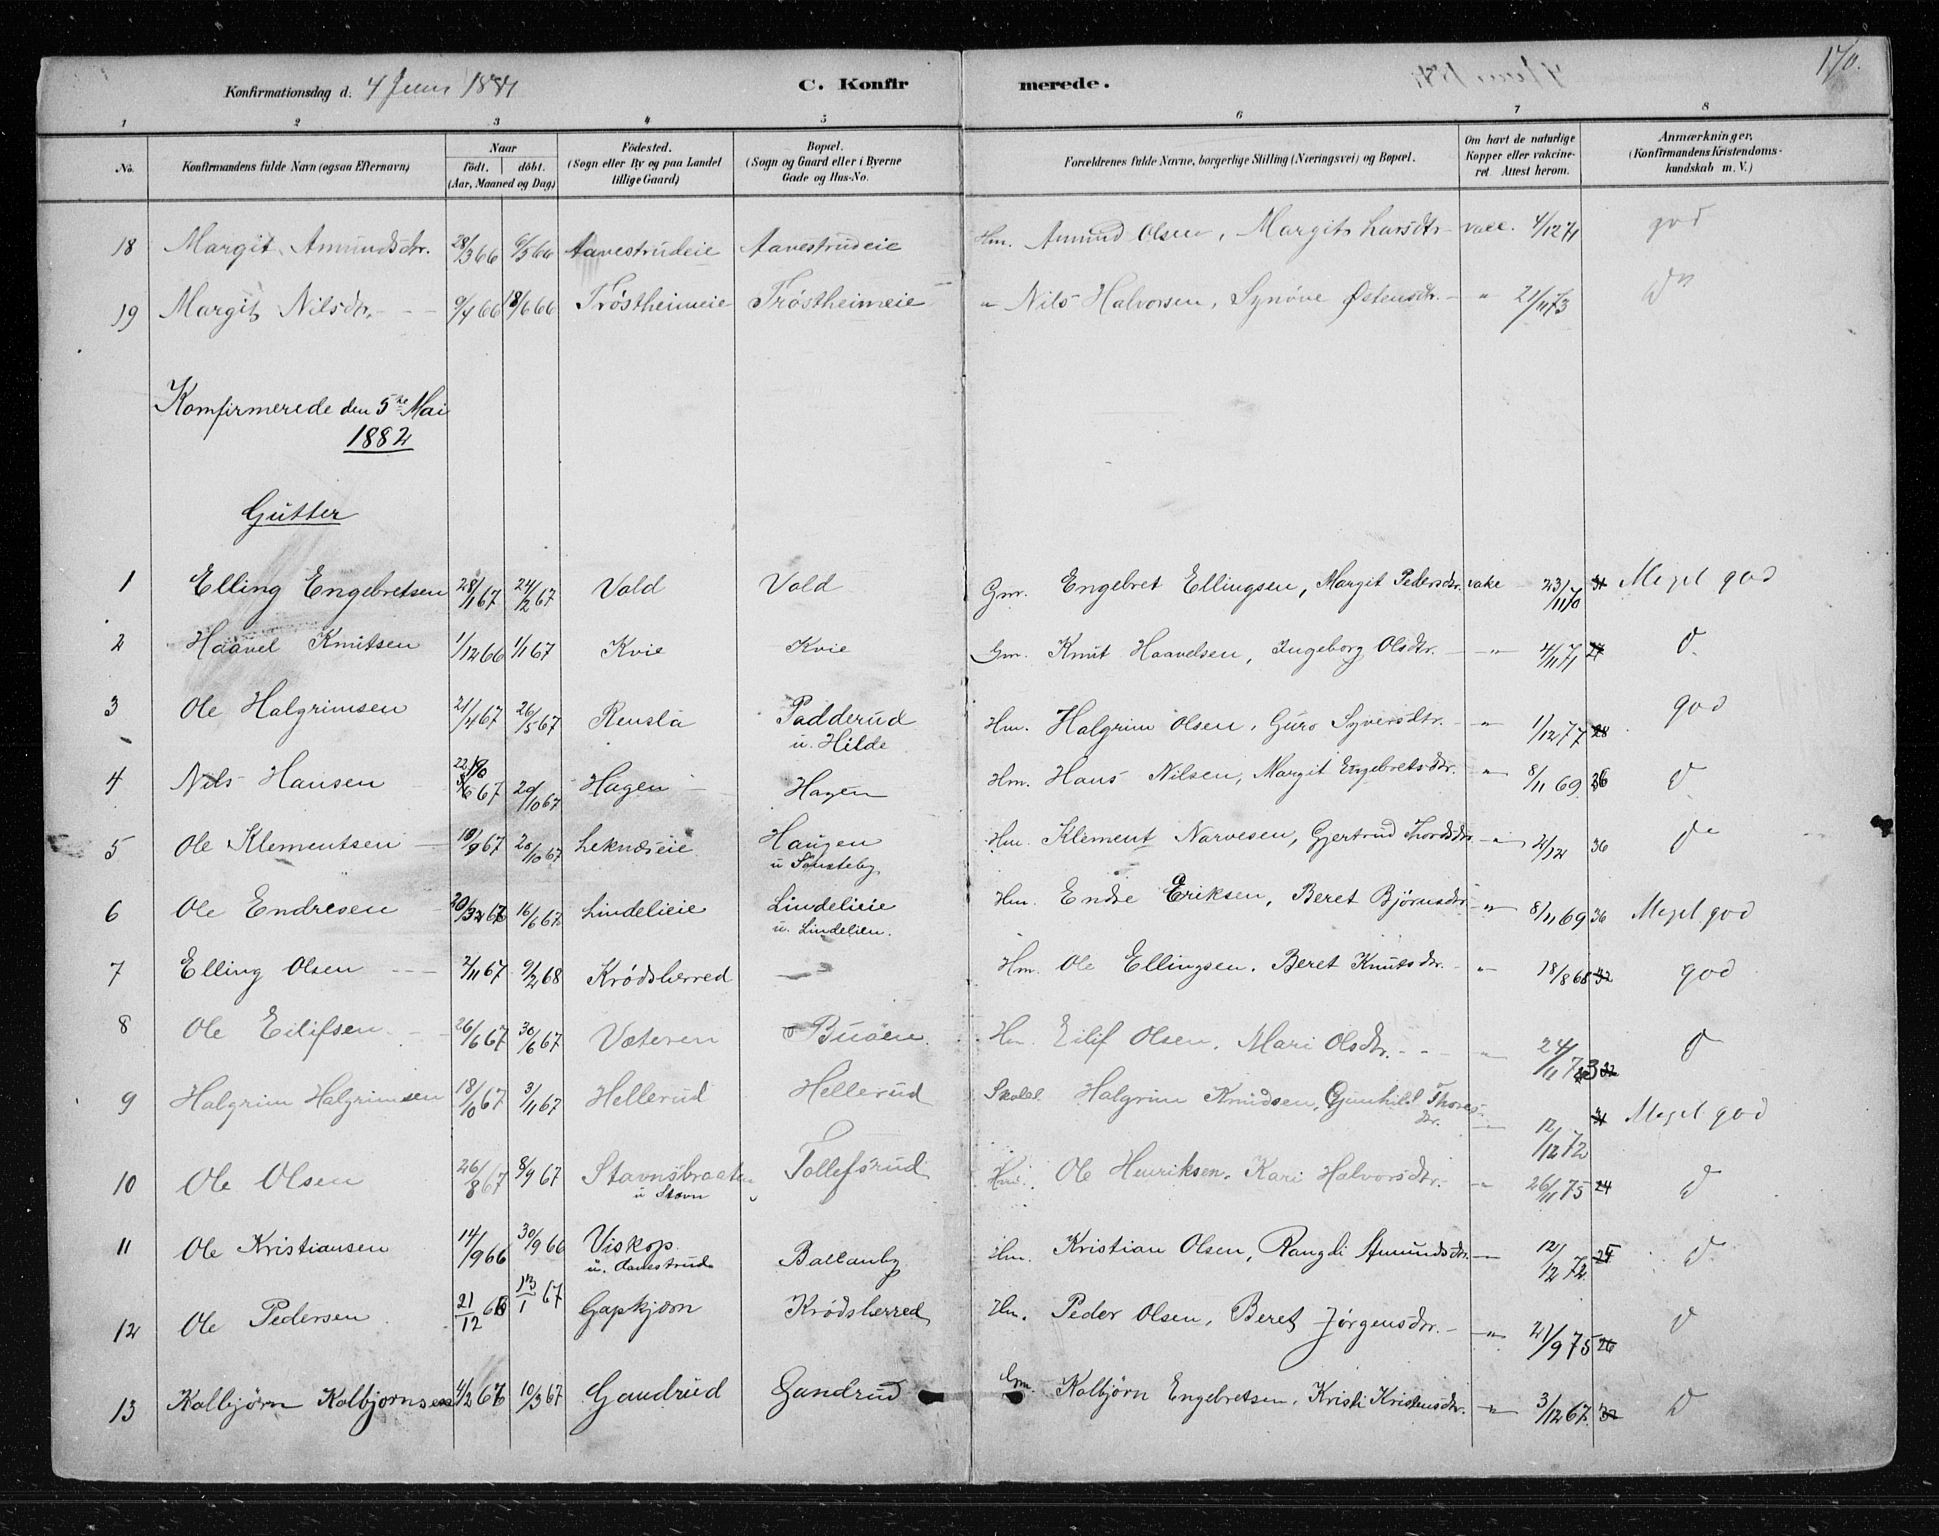 Konfirmationsdag d. 4 Juni 1881 C. Konfirmerede. 170.
1 2 3 4 5 6 7 8
No. Konfirmandens fulde Navn (ogsaa Efternavn) Naar födt. döbt. (Aar, Maaned og Dag) Födested. (Sogn eller By og paa Landet tillige Gaard) Bopæl. (Sogn og Gaard eller i Byerne Gade og Hus-No. Forældrenes fulde Navne, borgerlige Stilling (Næringsvei) og Bopæl. Om havt de naturlige Kopper eller vakcineret Attest herom. Anmærkninger. (Konfirmandens Kristendomskundskab m. V.)
18 Margit Amundsdtr. 28/3 66 6/5 66 Aavestrudeie Aavestrudeie Hm. Amund Olsen, Margit Larsdtr. vacc. 4/12 71 god
19 Margit Nilsdtr. 9/4 66 18/6 66 Tröstheimeie Tröstheimeie " Nils Halvorsen, Synöve Østensdtr. " 21/11 73 do
Konfirmerede den 5te Mai
1882
Gutter
1 Elling Engebretsen 28/1 67 24/2 67 Vold Vold Gm. Engebret Ellingsen, Margit Pedersdtr. vake 23/11 70 Meget god
2 Haavel Knutsen 1/12 66 1/1 67 Kvie Kvie Gm. Knut Haavelsen, Ingeborg Olsdtr. " 4/11 71 d
3 Ole Halgrimsen 21/4 67 26/5 67 Rensla Padderud Hm. Halgrim Olsen, Guro Syversdtr. " 1/12 77 28 god
u. Hilde
4 Nils Hansen 67 20/10 67 Hagen Hagen Hm. Hans Nilsen, Margit Engebretsdtr. " 8/11 69 36 d
5 Ole Klementsen 10/9 67 20/10 67 Leknæseie Haugen Hm. Klement Narvesen, Gjertrud Thordsdtr. " 2/12 36 do
u Sønsteby
6 Ole Endresen 16/6 67 Lindelieie Lindelieie Hm. Endre Eriksen, Beret Björnsdtr. " 8/11 69 36 Meget god
u. Lindelien.
7 Elling Olsen 2/11 67 9/2 68 Krödsherred — Hm. Ole Ellingsen. Beret Knutsdtr. " 18/8 68 32 god
8 Ole Eilifsen 26/6 67 30/6 67 Væteren Buöen Hm. Eilif Olsen. Mari Olsdtr. " 24/11 d
9 Halgrim Halgrimsen 18/10 67 3/11 67 Hellerud Hellerud Skolel. Halgrim Knudsen, Gunhild Thoresdtr. " 12/12 72 Meget god
10 Ole Olsen 26/8 67 8/9 67 Stavnsbraaten Tollefsrud Hm. Ole Henriksen. Kari Halvorsdtr. " 26/11 75 24 d
u Stavn
11 Ole Kristiansen 14/9 66 30/9 66 Viskop Ballanby Hm. Kristian Olsen, Rangdi Amundsdtr. 12/12 72 d
u. Aavestrud
12 Ole Pedersen 21/12 66 13/1 67 Gapkjærn Krödsherred Hm. Peder Olsen, Beret Jörgensdtr. " 21/9 75 26 d
13 Kolbjörn Kolbjörnsen 4/2 67 10/3 67 Gandrud Gandrud Gm. Kolbjörn Engebretsen, Kristi Kristensdtr. " 3/12 67. 32 d